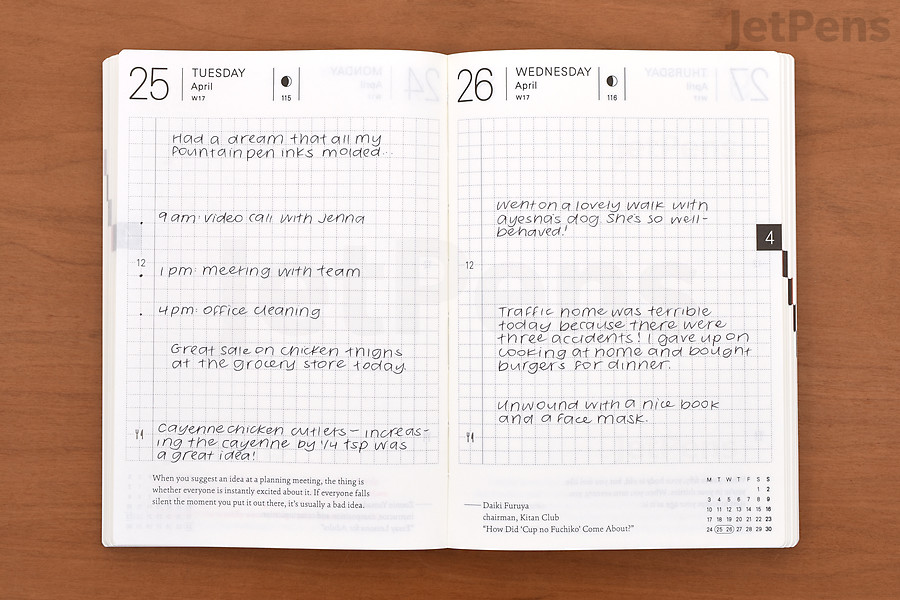 JetPens
25 TUESDAY
April
W17
115
Had a dream that all my
fountain pen inks molded...
. 9am: video call with Jenna
12
. 1pm: meeting with team
. 4pm: office cleaning
Great sale on chicken thighs
at the grocery store today.
Cayenne chicken cutlets – increas-
ing the cayenne by 1/4 tsp was
a great idea!
When you suggest an idea at a planning meeting, the thing is
whether everyone is instantly excited about it. If everyone falls
silent the moment you put it out there, it's usually a bad idea.
26 WEDNESDAY
April
W17
116
Went on a lovely walk with
Ayesha's dog. She's so well-
behaved!
4
12
Traffic home was terrible
today because there were
three accidents! I gave up on
cooking at home and bought
burgers for dinner.
Unwound with a nice book
and a face mask.
Daiki Furuya
chairman, Kitan Club
"How Did 'Cup no Fuchiko' Come About?"
M T W T F S S
1 2
3 4 5 6 7 8 9
10 11 12 13 14 15 16
17 18 19 20 21 22 23
24 25 26 27 28 29 30